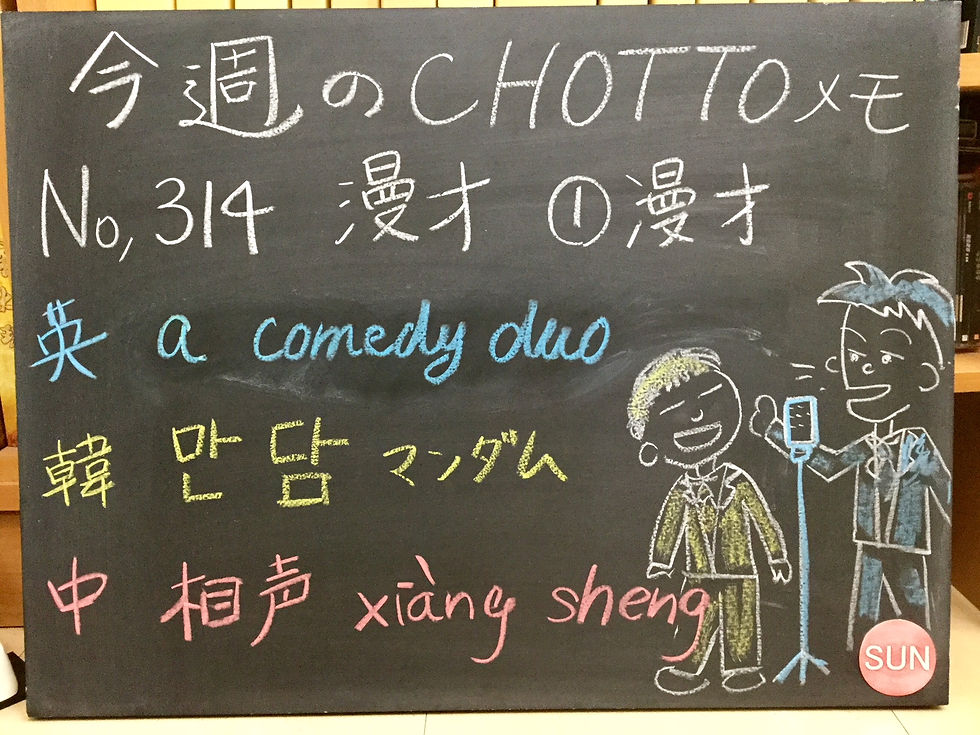 今週のCHOTTOメモ
No,314 漫才 ①漫才
英 a comedy duo
韓 만담 マンダム
中 相声 xiàng sheng
SUN